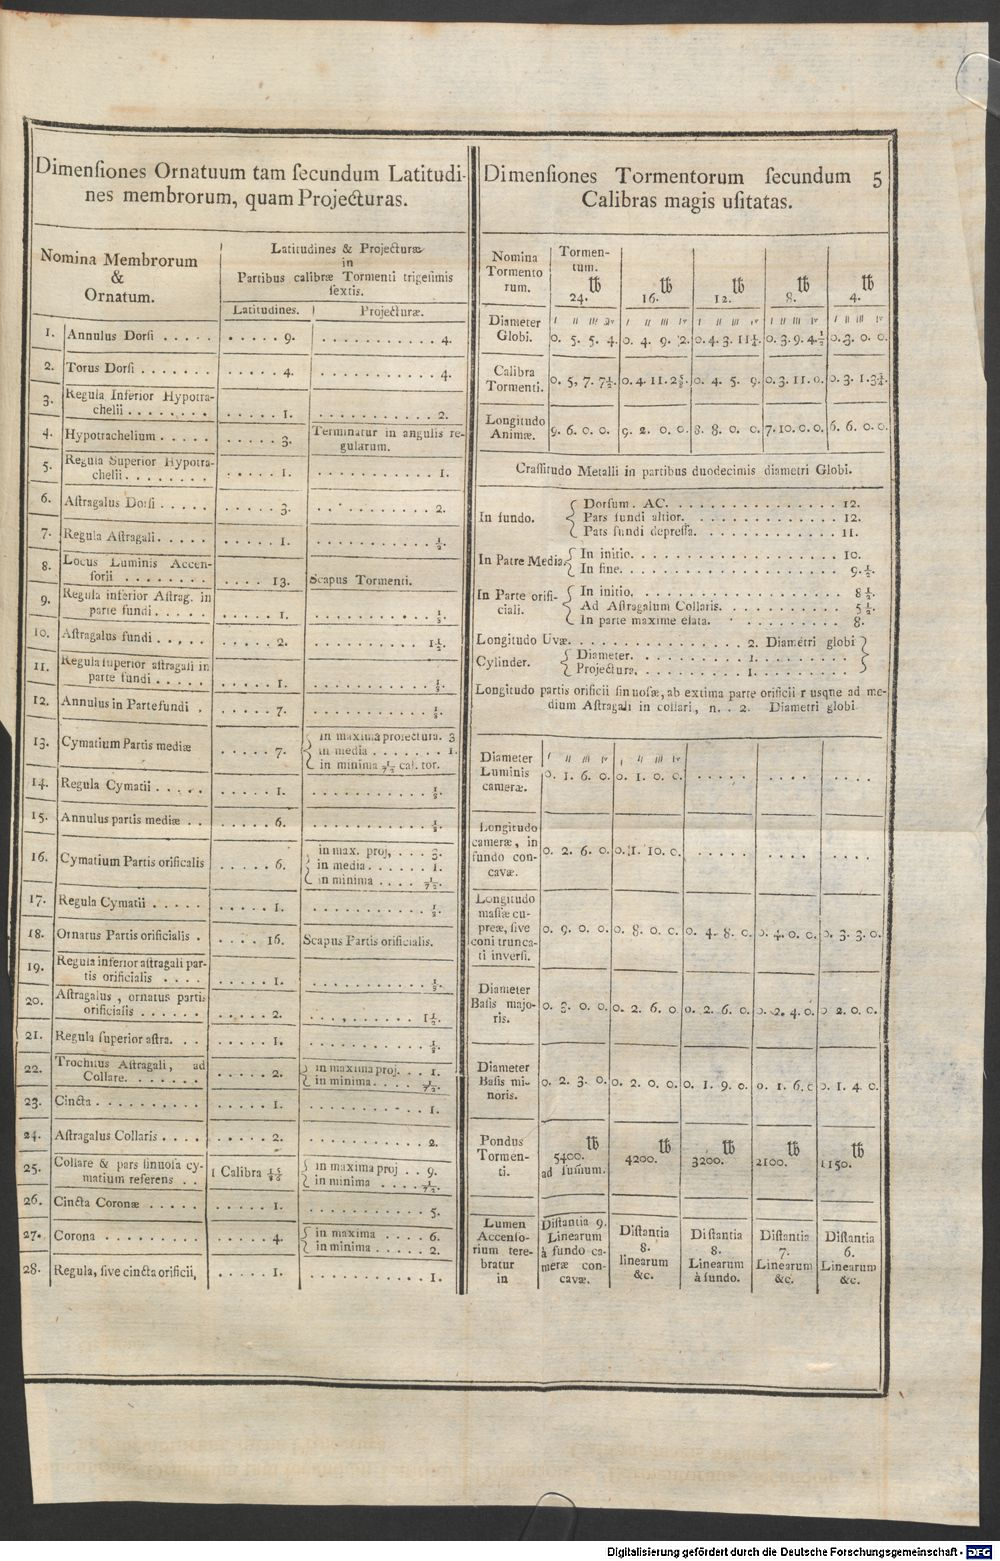 Dimenſiones Ornatuum tam ſecundum Latitudi-
nes membrorum, quam Projecturas.
Nomina Membrorum
&
Ornatum.
Latitudines & Projecturæ
in
Partibus calibræ Tormenti trigeſimis
ſextis.
Latitudines. Projecturæ.
1. Annulus Dorſi . . . . . . . . . . 9. . . . . . . . . . . . 4.
2. Torus Dorſi . . . . . . . . . . . . 4. . . . . . . . . . . . 4.
3. Regula Inferior Hypotra-
chelii . . . . . . . . . . . . . 1. . . . . . . . . . . . 2.
4. Hypotrachelium . . . . . . . . . . 3. Terminatur in angulis re-
gularum.
5. Regula Superior Hypotra-
chelii . . . . . . . . . . . . . 1. . . . . . . . . . . . 1.
6. Aſtragalus Dorſi . . . . . . . . . . 3. . . . . . . . . . . . 2.
7. Regula Aſtragali . . . . . . . . . . 1. . . . . . . . . . . . ½.
8. Locus Luminis Accen-
ſorii . . . . . . . . . . . . 13. Scapus Tormenti.
9. Regula inferior Aſtrag. in
parte fundi . . . . . . . . . . 1. . . . . . . . . . . . ½.
10. Aſtragalus fundi . . . . . . . . . . 2. . . . . . . . . . . . 1½.
11. Regula ſuperior aſtragali in
parte fundi . . . . . . . . . . 1. . . . . . . . . . . . ½.
12. Annulus in Parte fundi . . . . . . 7. . . . . . . . . . . . ½.
13. Cymatium Partis mediæ . . . . . 7. in maxima projectura. 3
in media . . . . . . . 1.
in minima 1/72 cal. tor.
14. Regula Cymatii . . . . . . . . . . 1. . . . . . . . . . . . ½.
15. Annulus partis mediæ . . . . . . . 6. . . . . . . . . . . . ½.
16. Cymatium Partis orificalis . . . . . 6. in max. proj, . . . 3.
in media . . . . . . 1.
in minima . . . . 1/72.
17. Regula Cymatii . . . . . . . . . . 1. . . . . . . . . . . . ½.
18. Ornatus Partis orificialis . . . . . 16. Scapus Partis orificialis.
19. Regula inferior aſtragali par-
tis orificialis . . . . . . . . . 1. . . . . . . . . . . . ½.
20. Aſtragalus , ornatus partis
orificialis . . . . . . . . . . . 2. . . . . . . . . . . . 1½.
21. Regula ſuperior aſtra. . . . . . . . 1. . . . . . . . . . . . ½.
22. Trochilus Aſtragali, ad
Collare. . . . . . . . . . . . . 2. in maxima proj. . . 1.
in minima . . . . 1/72.
23. Cincta . . . . . . . . . . . . . . . 1. . . . . . . . . . . . 1.
24. Aſtragalus Collaris . . . . . . . . . 2. . . . . . . . . . . . 2.
25. Collare & pars ſinuoſa cy-
matium referens . . 1 Calibra in maxima proj . . 9.
in minima . . . . 1/72.
26. Cincta Coronæ . . . . . . . . . . 1. . . . . . . . . . . . 5.
27. Corona . . . . . . . . . . . . . . 4. in maxima . . . . . 6.
in minima . . . . . 2.
28. Regula, ſive cincta orificii, . . . . . 1. . . . . . . . . . . . 1.
Dimenſiones Tormentorum ſecundum 5
Calibras magis uſitatas.
Nomina
Tormento
rum.
Tormen-
tum.
℔ ℔ ℔ ℔ ℔
24. 16. 12. 8. 4.
Diameter
Globi.
I II III IV I II III IV I II III IV I II III IV I II III IV
0. 5. 5. 4. 0. 4. 9. 2. 0. 4. 3. 11½. 0. 3. 9. 4½ 0. 3. 0. 0.
Calibra
Tormenti.
0. 5, 7. 7½. 0. 4. 11. 2⅝. 0. 4. 5. 9. 0. 3. 11. 0. 0. 3. 1. 3¼.
Longitudo
Animæ.
9. 6. 0. 0. 9. 2. 0. 0. 8. 8. 0. 0. 7. 10. 0. 0. 6. 6. 0. 0.
Craſſitudo Metalli in partibus duodecimis diametri Globi.
In fundo.
Dorſum. AC. . . . . . . . . . . . . . . . 12.
Pars fundi altior. . . . . . . . . . . . . 12.
Pats fundi depreſſa. . . . . . . . . . . . 11.
In Patre Media
In initio. . . . . . . . . . . . . . . . . 10.
In fine. . . . . . . . . . . . . . . . . . 9.½.
In Parte orifi-
ciali.
In initio. . . . . . . . . . . . . . . . . 8½.
Ad Aſtragalum Collaris. . . . . . . . . . 5½.
In parte maxime elata. . . . . . . . . . . 8.
Longitudo Uvæ. . . . . . . . . . . . . . 2. Diametri globi
Cylinder.
Diameter. . . . . . . . . 1. . . . . . . . . .
Projectura. . . . . . . . 1. . . . . . . . . .
Longitudo partis orificii ſinuoſæ, ab extima parte orificii r usqne ad me-
dium Aſtragali in collari, n. . 2. Diametri globi
Diameter
Luminis
cameræ.
I II III IV I II III IV
0. 1. 6. 0. 0. 1. 0. 0. . . . . . . . . . . . . .
Longitudo
cameræ, in
fundo con-
cavæ.
0. 2. 6. 0. 0. 1. 10. 0. . . . . . . . . . . . . .
Longitudo
maſſæ cu-
preæ, ſive
coni trunca-
ti inverſi.
0. 9. 0. 0. 0. 8. 0. 0. 0. 4. 8. 0. 0. 4. 0. 0. 0. 3. 3. 0.
Diameter
Baſis majo-
ris.
0. 3. 0. 0. 0. 2. 6. 0. 0. 2. 6. 0. 0. 2. 4. 0. 0. 2. 0. 0.
Diameter
Baſis mi-
noris.
0. 2. 3. 0. 0. 2. 0. 0. 0. 1. 9. 0. 0. 1. 6. 0 0. 1. 4. 0.
Pondus
Tormen-
ti.
℔ ℔ ℔ ℔ ℔
5400. 4200. 3200. 2100. 1150.
ad ſumum.
Lumen
Accenſo-
rium tere-
bratur
in
Diſtantia 9.
Linearum
à fundo ca-
meræ con-
cavæ.
Diſtantia
8.
linearum
&c.
Diſtantia
8.
Linearum
à fundo.
Diſtantia
7.
Linearum
&c.
Diſtantia
6.
Linearum
&c.
Digitalisierung gefördert durch die Deutsche Forschungsgemeinschaft - DFG